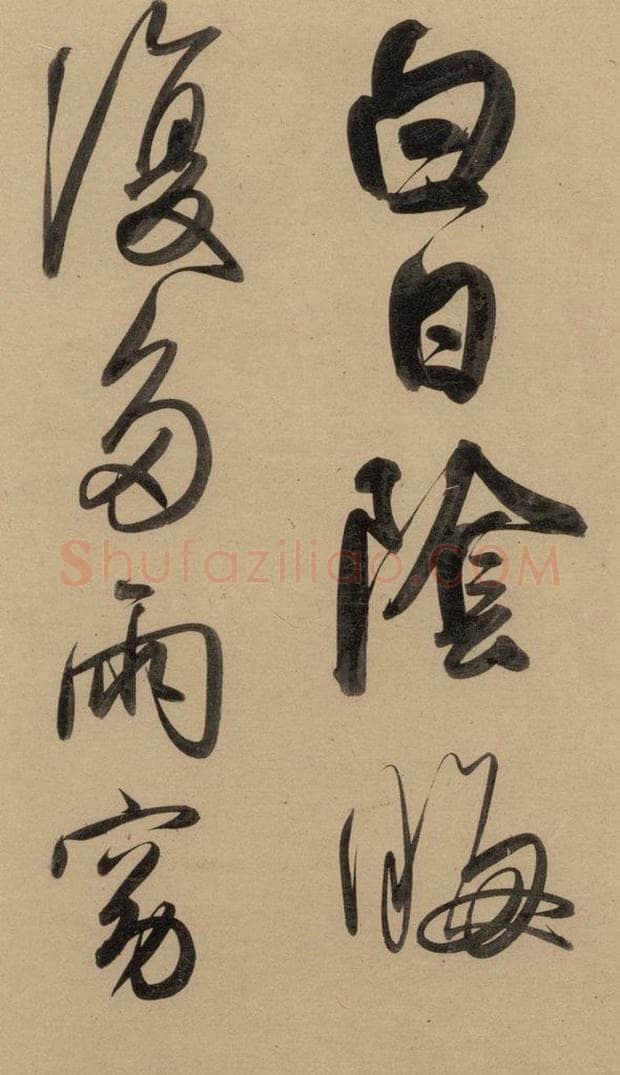 白日陰晦
復多雨寡
Shufaziliao.COM